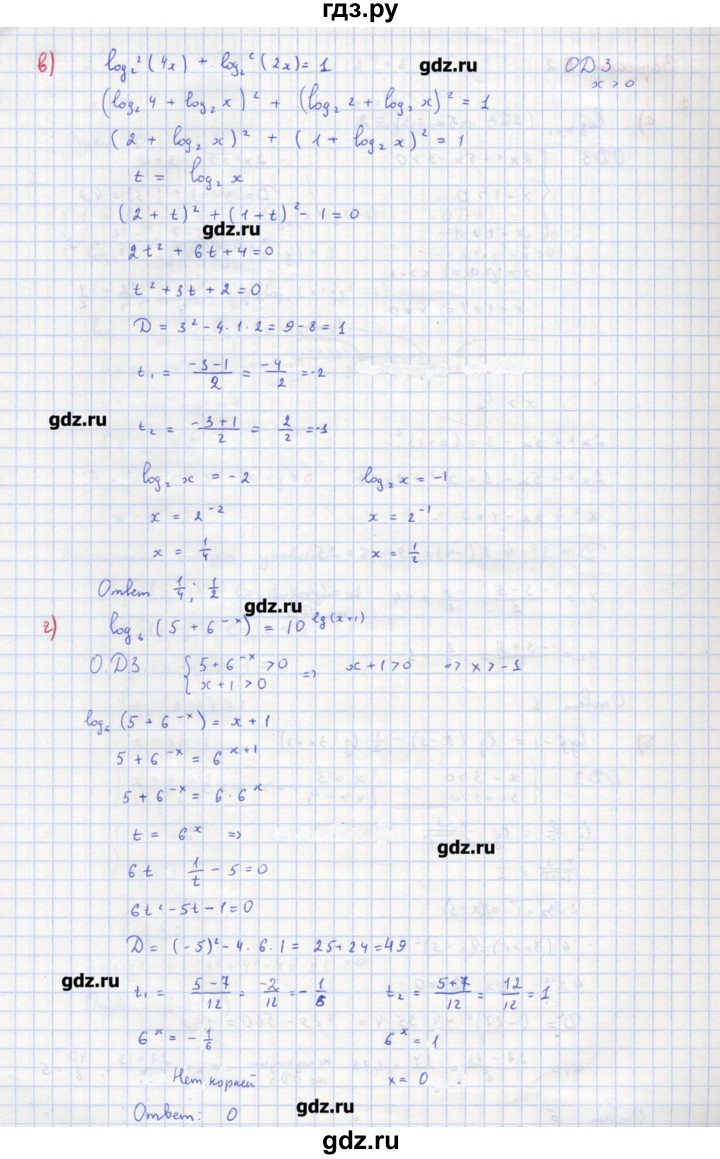 гдз.ру
в) log₂²(4x) + log₂²(2x) = 1 ОДЗ
gdz.ru
x > 0
(log₂ 4 + log₂ x)² + (log₂ 2 + log₂ x)² = 1
(2 + log₂ x)² + (1 + log₂ x)² = 1
t = log₂ x
(2 + t)² + (1 + t)² - 1 = 0
gdz.ru
2t² + 6t + 4 = 0
t² + 3t + 2 = 0
D = 3² - 4·1·2 = 9 - 8 = 1
t₁ = (-3-1)/2 = -4/2 = -2
gdz.ru
t₂ = (-3+1)/2 = 2/2 = -1
log₂ x = -2 log₂ x = -1
x = 2⁻² x = 2⁻¹
x = 1/4 x = 1/2
Ответ 1/4; 1/2
gdz.ru
г) log₆ (5 + 6⁻ˣ) = 10^lg(x+1)
О.ДЗ { 5 + 6⁻ˣ > 0 x + 1 > 0 => x + 1 > 0 => x > -1
log₆ (5 + 6⁻ˣ) = x + 1
5 + 6⁻ˣ = 6ˣ⁺¹
5 + 6⁻ˣ = 6 · 6ˣ
t = 6ˣ =>
gdz.ru
6t 1/t - 5 = 0
6t² - 5t - 1 = 0
D = (-5)² - 4·6·1 = 25 + 24 = 49
gdz.ru
t₁ = (5-7)/12 = -2/12 = -1/6 t₂ = (5+7)/12 = 12/12 = 1
6ˣ = -1/6 6ˣ = 1
Нет корней x = 0
Ответ: 0
gdz.ru
gdz.ru